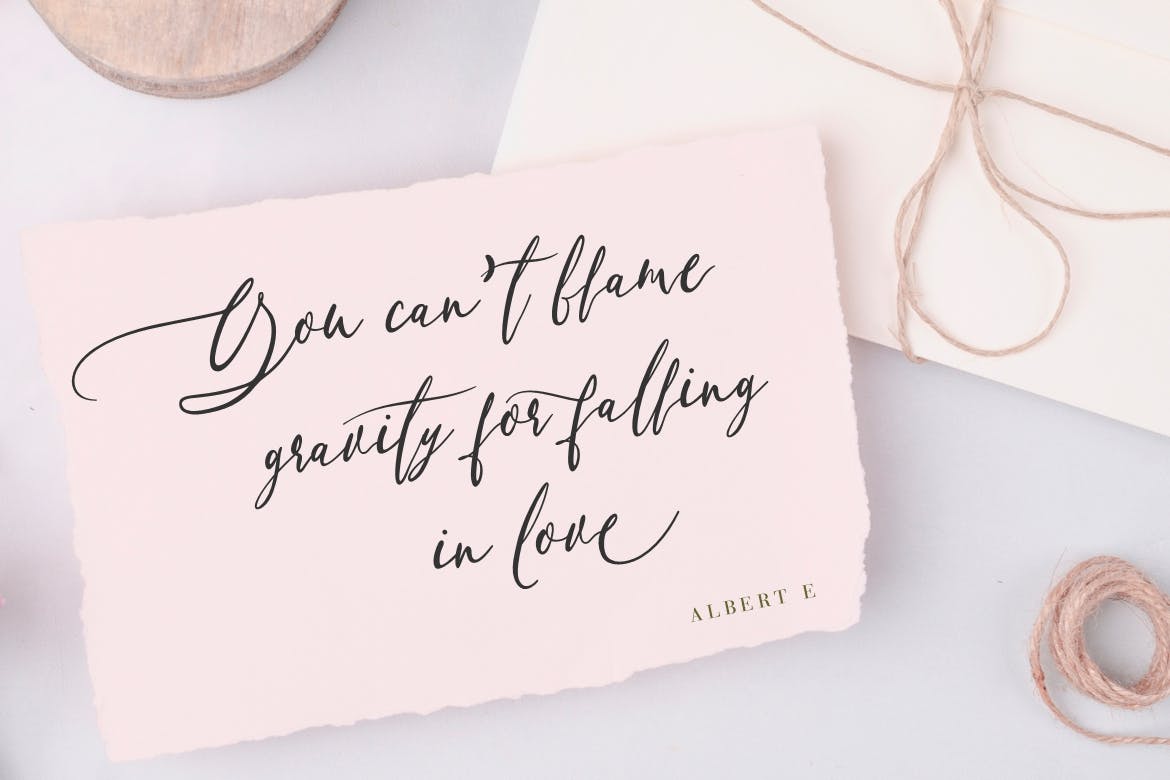 You can't blame
gravity for falling
in love
ALBERT E